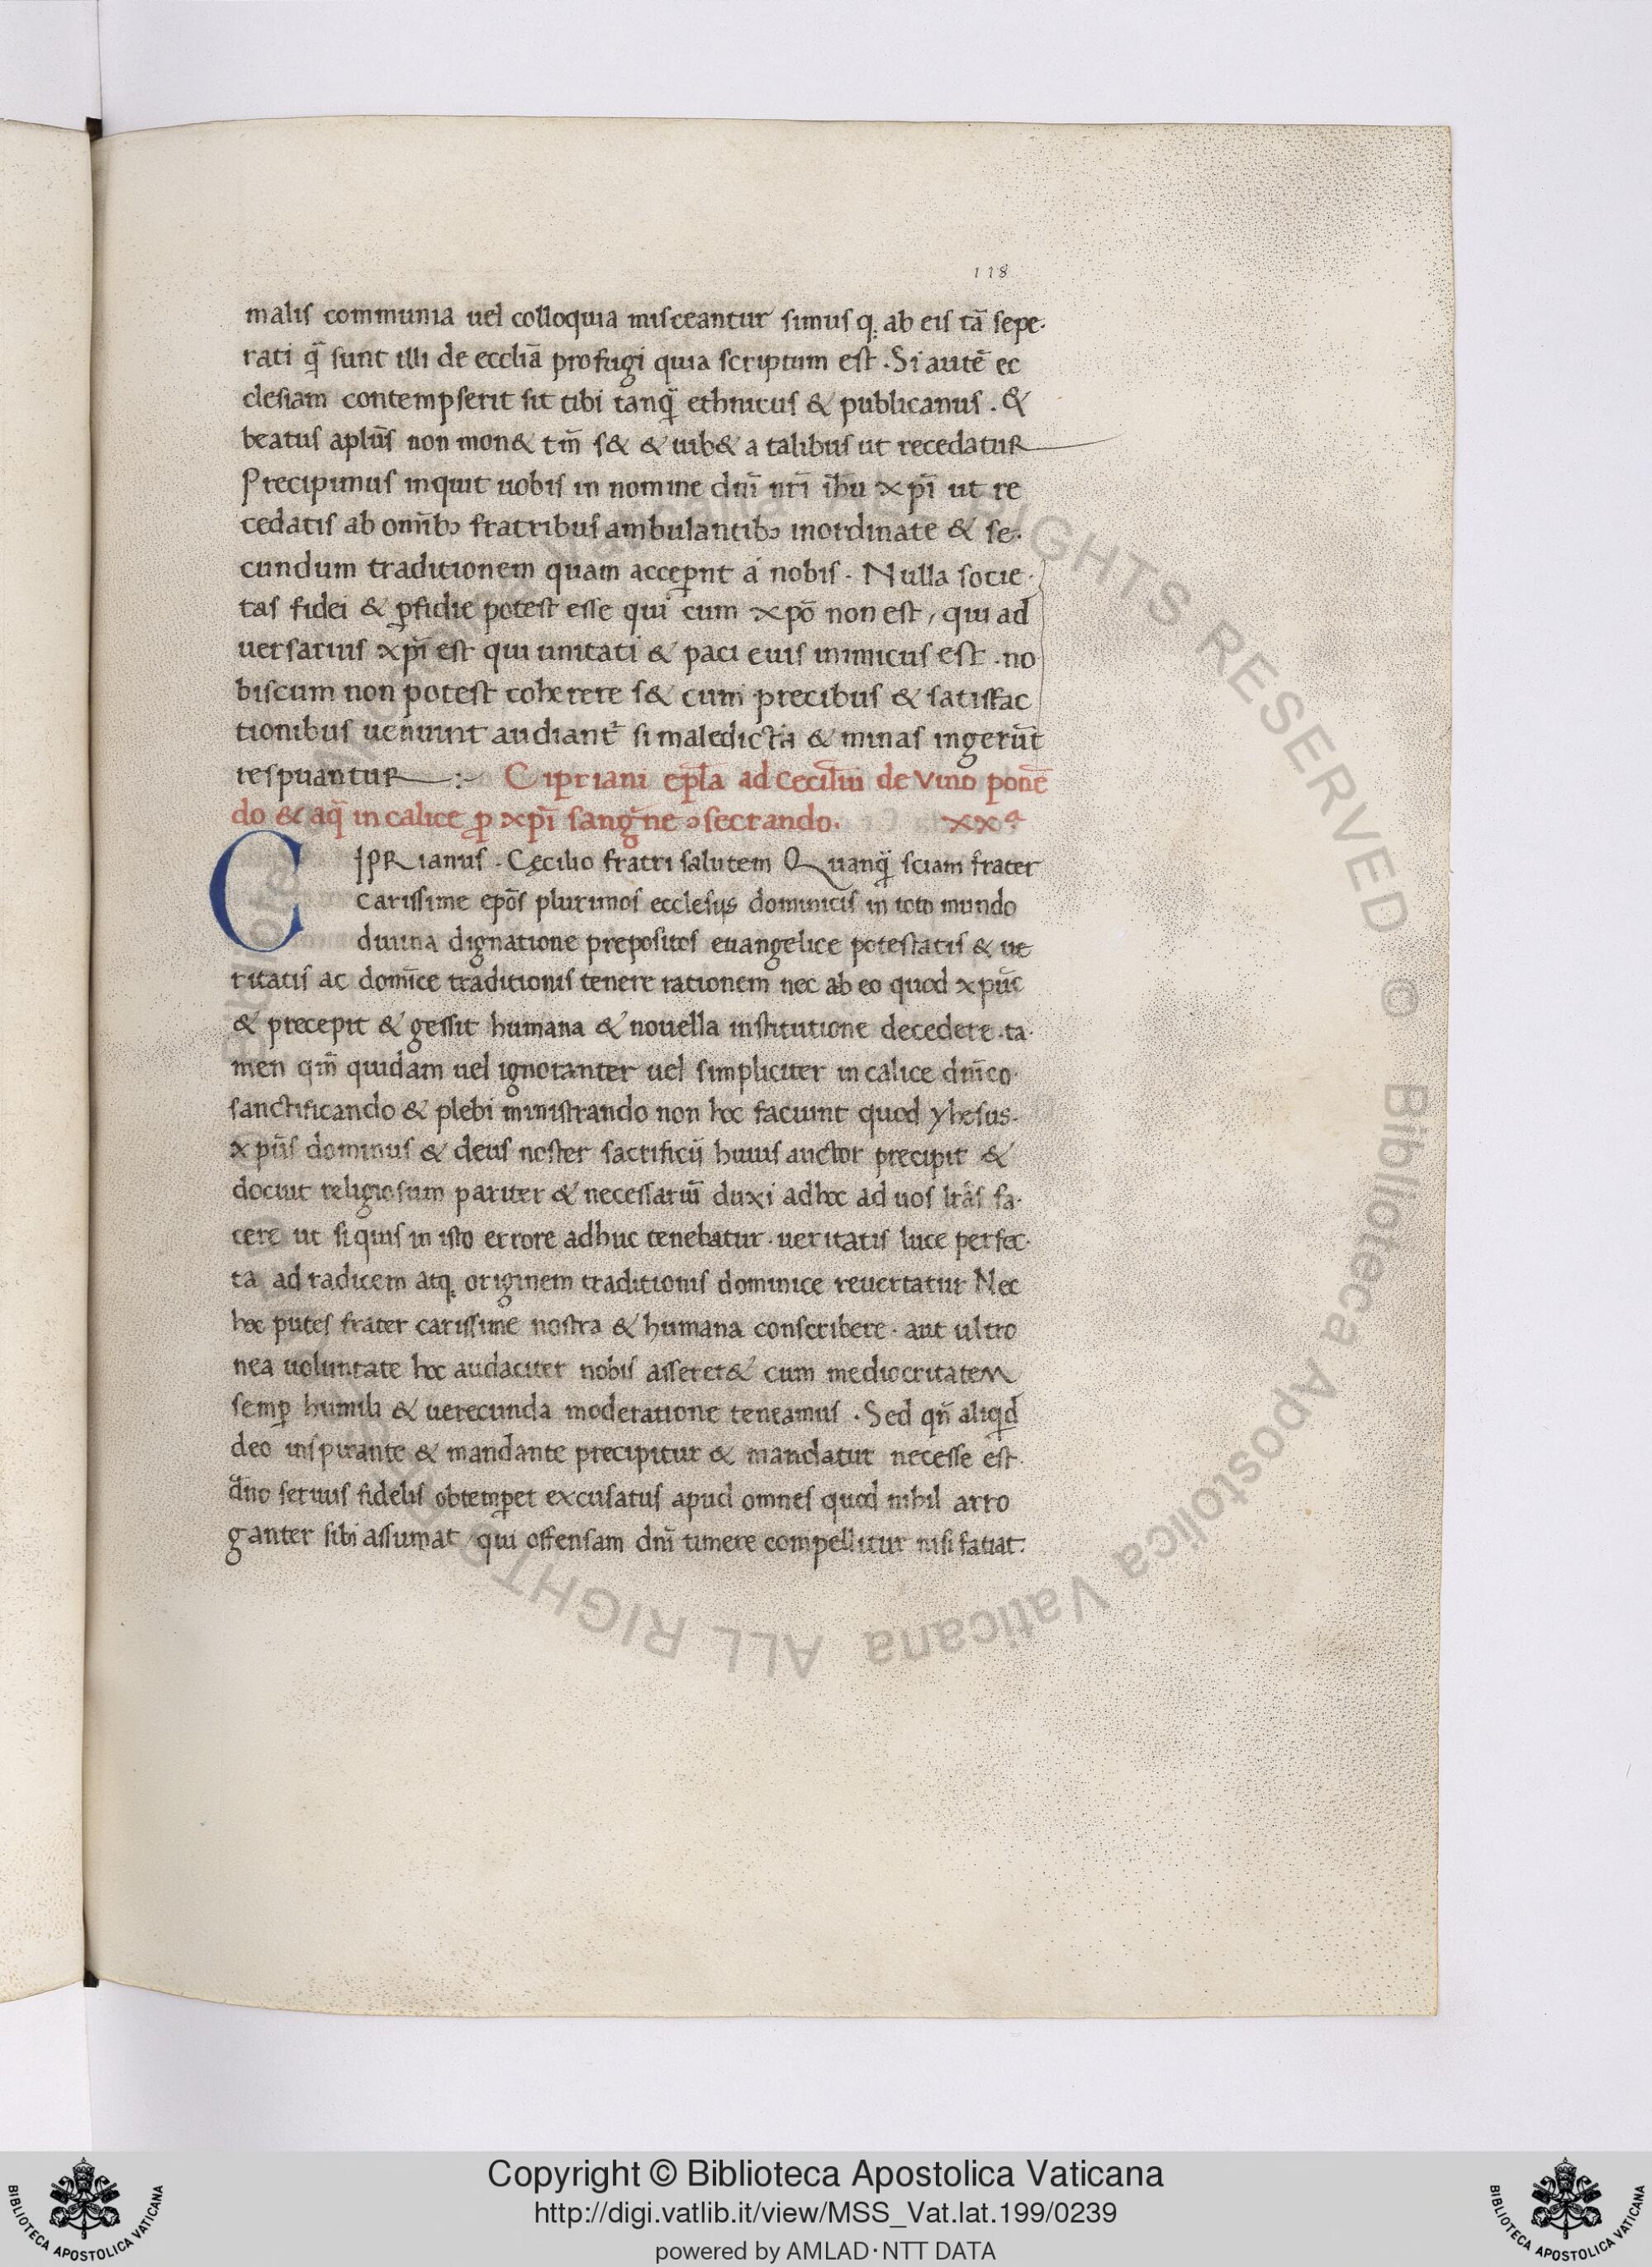 118
malis communia uel colloquia misceantur simus q; ab eis tā sepe·
rati q̄ sunt illi de ecclīa profugi quia scriptum est . Si autē ec
clesiam contempserit sit tibi tanq̄ ethnicus & publicanus . &
beatus aplūs non mon& tm̄ s& & iub& a talibus ut recedatuR
Precipimus inquit uobis in nomine dnī nrī ih̄u xp̄i ut re
cedatis ab omībꝫ fratribus ambulantibꝫ inordinate & se·
cundum traditionem quam acceꝑnt a nobis . Nulla socie·
tas fidei & ꝑfidie potest esse qui cum xp̄o non est, qui ad
uersarius xp̄i est qui unitati & paci euis inimicus est . no
biscum non potest coherere s& cum precibus & satisfac
tionibus ueniunt audiant᷑ si maledicta & minas ingerūt
respuantuR :~ Cipriani epl̄a ad Cecil̄iū de Vino ponē
do & aq̄ in calice ꝓ xp̄i sang̃ne ɔsecrando. xxᵃ
CIPRianus . Cęcilio fratri salutem Quanq̄ sciam frater
carissime ep̄os plurimos ecclesijs dominicis in toto mundo
diuina dignatione prepositos euangelice potestatis & ue
ritatis ac domīce traditionis tenere rationem nec ab eo quod xpūc
& precepit & gessit humana & nouella institutione decedere . ta·
men qm̄ quidam uel ignoranter uel simpliciter in calice dnīco·
sanctificando & plebi ministrando non hoc faciunt quod yhesus·
xpūs dominus & deus noster sacrificij huius auctor precipit &
docuit religiosum pariter & necessariū duxi ad hoc ad uos lrās fa·
cere ut si quis in isto errore adhuc tenebatur . ueritatis luce perfec·
ta ad radicem atq; originem traditionis dominice reuertatur Nec
hoc putes frater carissime nostra & humana conscribere . aut ultro
nea uoluntate hoc audaciter nobis asserer& cum mediocritatem
semꝑ humili & uerecunda moderatione teneamus . Sed qn̄ aliqd
deo inspirante & mandante precipitur & mandatur necesse est·
dn̄o seruus fidelis obtemꝑet excusatus apud omnes quod nihil arro
ganter sibi assumat, qui offensam dnī timere compellitur nisi faciat·
Copyright © Biblioteca Apostolica Vaticana
http://digi.vatlib.it/view/MSS_Vat.lat.199/0239
powered by AMLAD·NTT DATA
BIBLIOTECA APOSTOLICA VATICANA
BIBLIOTECA APOSTOLICA VATICANA